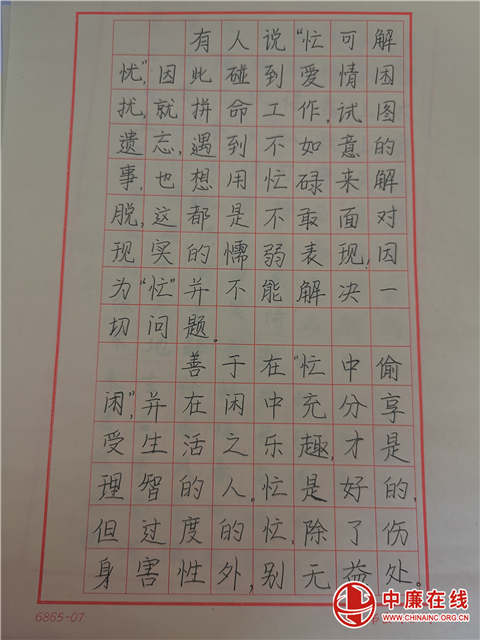 有人说“忙可解
忧”,因此碰到爱情困
扰,就拼命工作,试图
遗忘,遇到不如意的
事,也想用忙碌来解
脱,这都是不敢面对
现实的懦弱表现,因
为“忙”并不能解决一
切问题。
善于在“忙中偷
闲”,并在闲中充分享
受生活之乐趣,才是
理智的人。忙是好的,
但过度的忙,除了伤
身害性外,别无益处。
6865-07
中廉在线
WWW.CHINAINC.ORG.CN